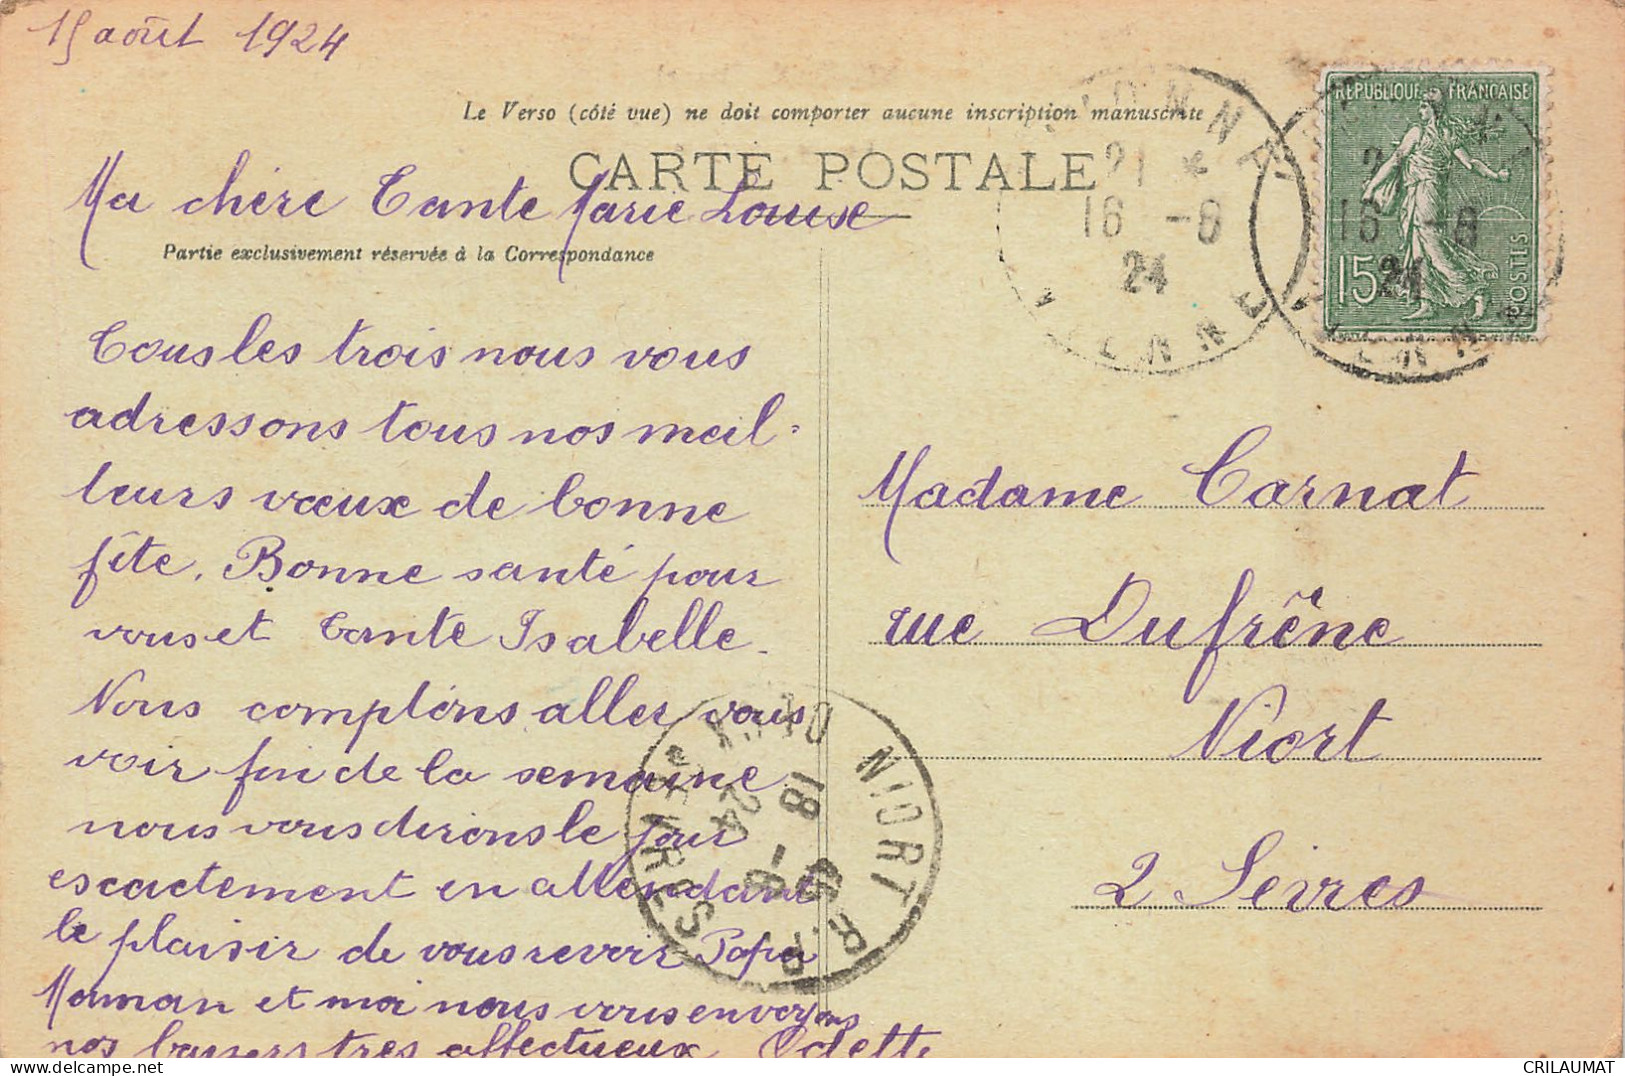 15 août 1924
Le Verso (côté vue) ne doit comporter aucune inscription manuscrite
CARTE POSTALE
Ma chère Tante Marie Louise
Partie exclusivement réservée à la Correspondance
Tous les trois nous vous
adressons tous nos meil-
leurs vœux de bonne
fête. Bonne santé pour
vous et Tante Isabelle.
Nous comptons aller vous
voir fin de la semaine
nous vous dirons le jour
exactement en attendant
le plaisir de vous revoir Papa
Maman et moi nous vous envoyons
nos baisers très affectueux Odette
RÉPUBLIQUE FRANÇAISE
15
POSTES
21 *
16 -8
24
VIENNE
21
16 -8
24
Madame Carnat
rue Dufrêne
Niort
2 Sèvres
NIORT R.P.
18 -8
24
DEUX SÈVRES
CRILAUMAT